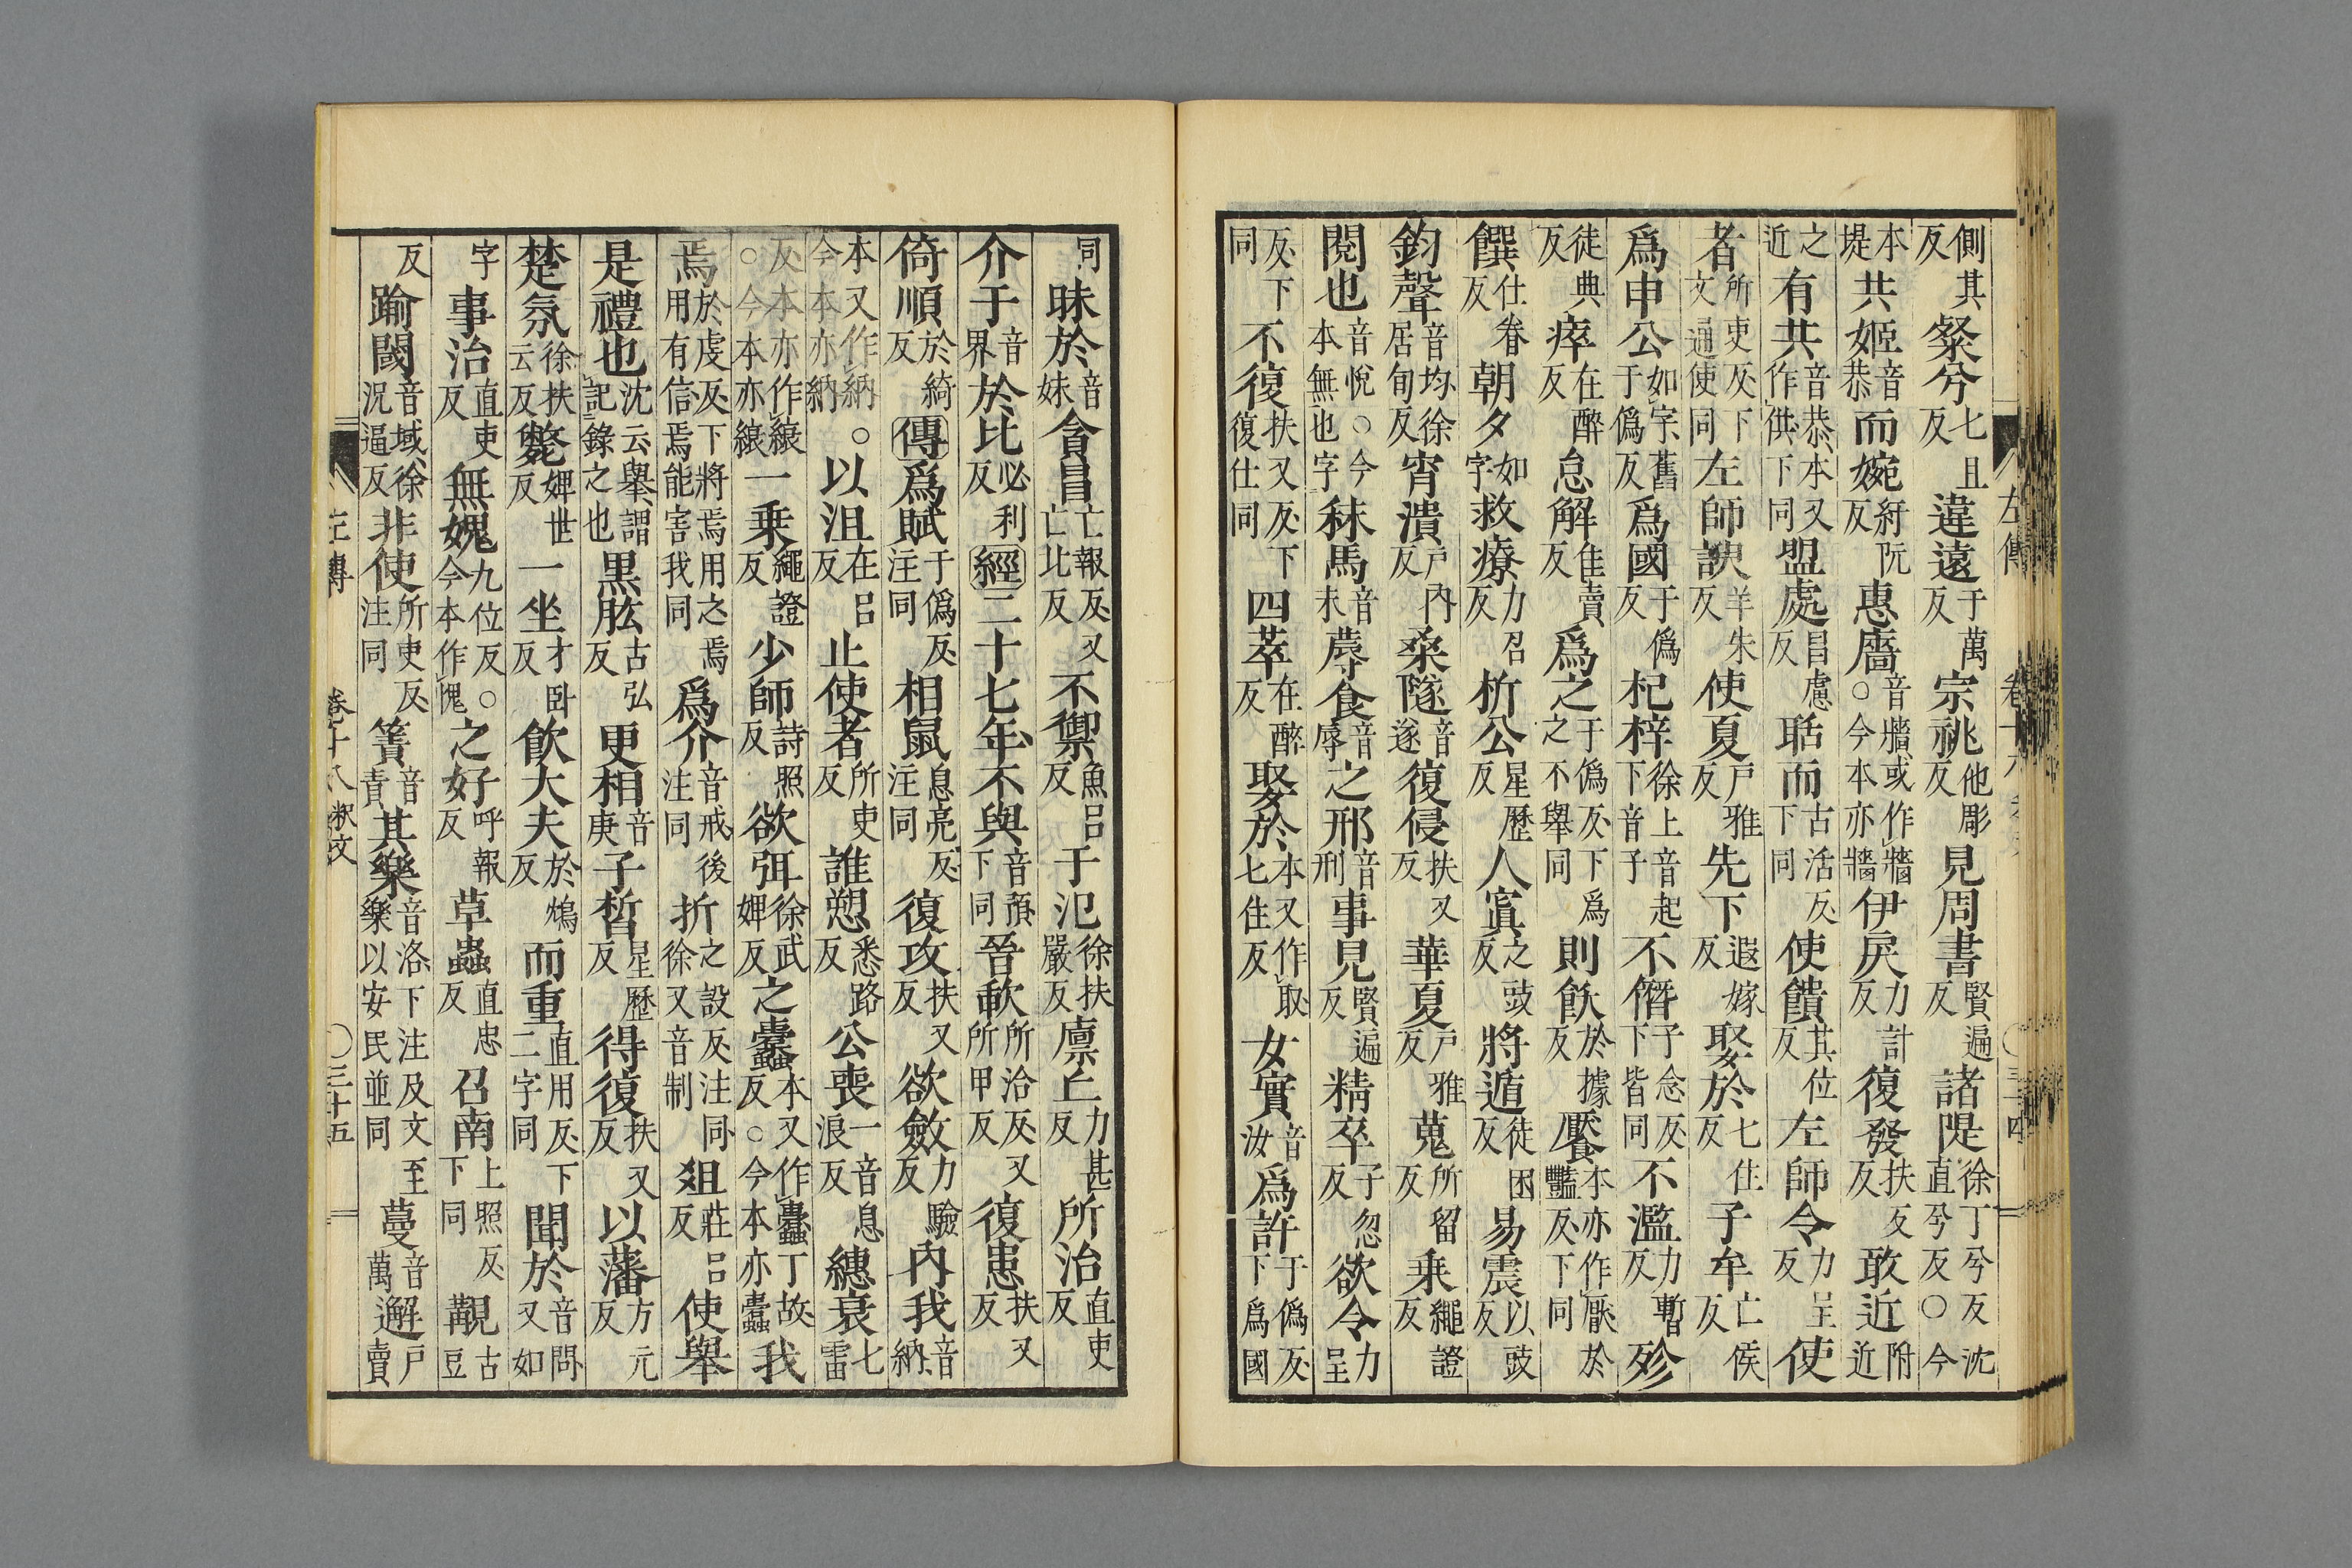 側其反粲兮七且反違遠于萬反宗祧他彫反見周書賢遍反諸隄徐丁兮反沈直兮反○今
本堤共姬音恭而婉紆阮反惠牆音牆或作牆○今本亦牆伊戾力計反復發扶又反敢近附近
之近有共音恭本又作供下同盟處昌慮反聒而古活反下同使饋其位反左師令力呈反使
者所吏反下文通使同左師諛羊朱反使夏戶雅反先下遐嫁反娶於七住反子牟亡侯反
爲申公如字舊于僞反爲國于僞反杞梓徐上音起下音子不僭子念反下皆同不濫力暫反殄
徒典反瘁在醉反怠解佳賣反爲之于僞反下爲之不舉同則飫於據反饜本亦作厭於豔反下同
饌仕眷反朝夕如字救療力召反析公星歷反人寘之豉反將遁徒困反易震以豉反
鈞聲音均徐居旬反宵潰戶內反桑隧音遂復侵扶又反華夏戶雅反蒐所留反乘繩證反
閱也音悅○今本無也字秣馬音末蓐食音辱之邢音刑事見賢遍反精卒子忽反欲令力呈
反下同不復扶又反下復仕同四萃在醉反娶於本又作取七住反女實音汝爲許于僞反下爲國
左傳 卷十八 三十四
同昧於音妹貪冒亡報反又亡比反不禦魚呂反于氾徐扶嚴反廩丘力甚反所治直吏反
介于音界於比必利反經二十七年不與音預下同晉歃所洽反又所甲反復患扶又反
倚順於綺反傳爲賦于僞反注同相鼠息亮反注同復攻扶又反欲斂力驗反內我音納
本又作納○今本亦納以沮在呂反止使者所吏反誰愬悉路反公喪一音息浪反繐衰七雷
反本亦作縗○今本亦縗一乘繩證反少師詩照反欲弭徐武婢反之蠹本又作蠹丁故反○今本亦蠹我
焉於虔反下將焉用之焉用有信焉能害我同爲介音戒後注同折之設反注同徐又音制俎莊呂反使舉
是禮也沈云舉謂記錄之也黑肱古弘反更相音庚子晳星歷反得復扶又反以藩方元反
楚氛徐扶云反斃婢世反一坐才臥反飲大夫於鴆反而重直用反下二字同聞於音問又如
字事治直吏反無媿九位反○今本作愧之好呼報反草蟲直忠反召南上照反下同覯古豆
反踰閾音域徐況逼反非使所吏反注同簀音責其樂音洛下注及文樂以安民並同至蔓音萬邂戶賣
左傳 卷十八 釈文 三十五